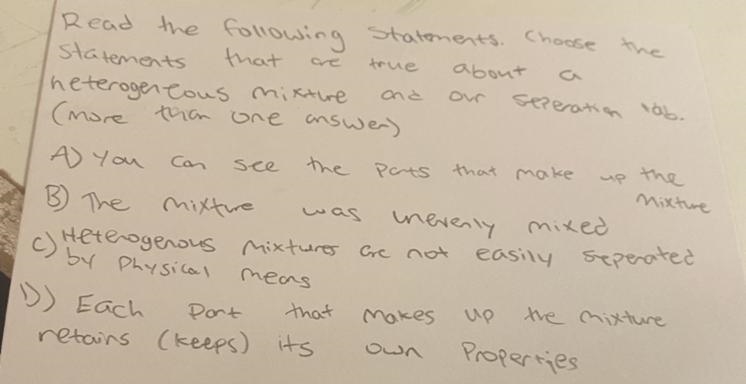 Read the following Statements. Choose the
Statements that are true about a
heterogeneous mixture and our seperation lab.
(more than one answer)
A) You can see the parts that make up the
mixture
B) The mixture was unevenly mixed
C) Heterogenous mixtures are not easily seperated
by physical means
D) Each part that makes up the mixture
retains (keeps) its own Properties